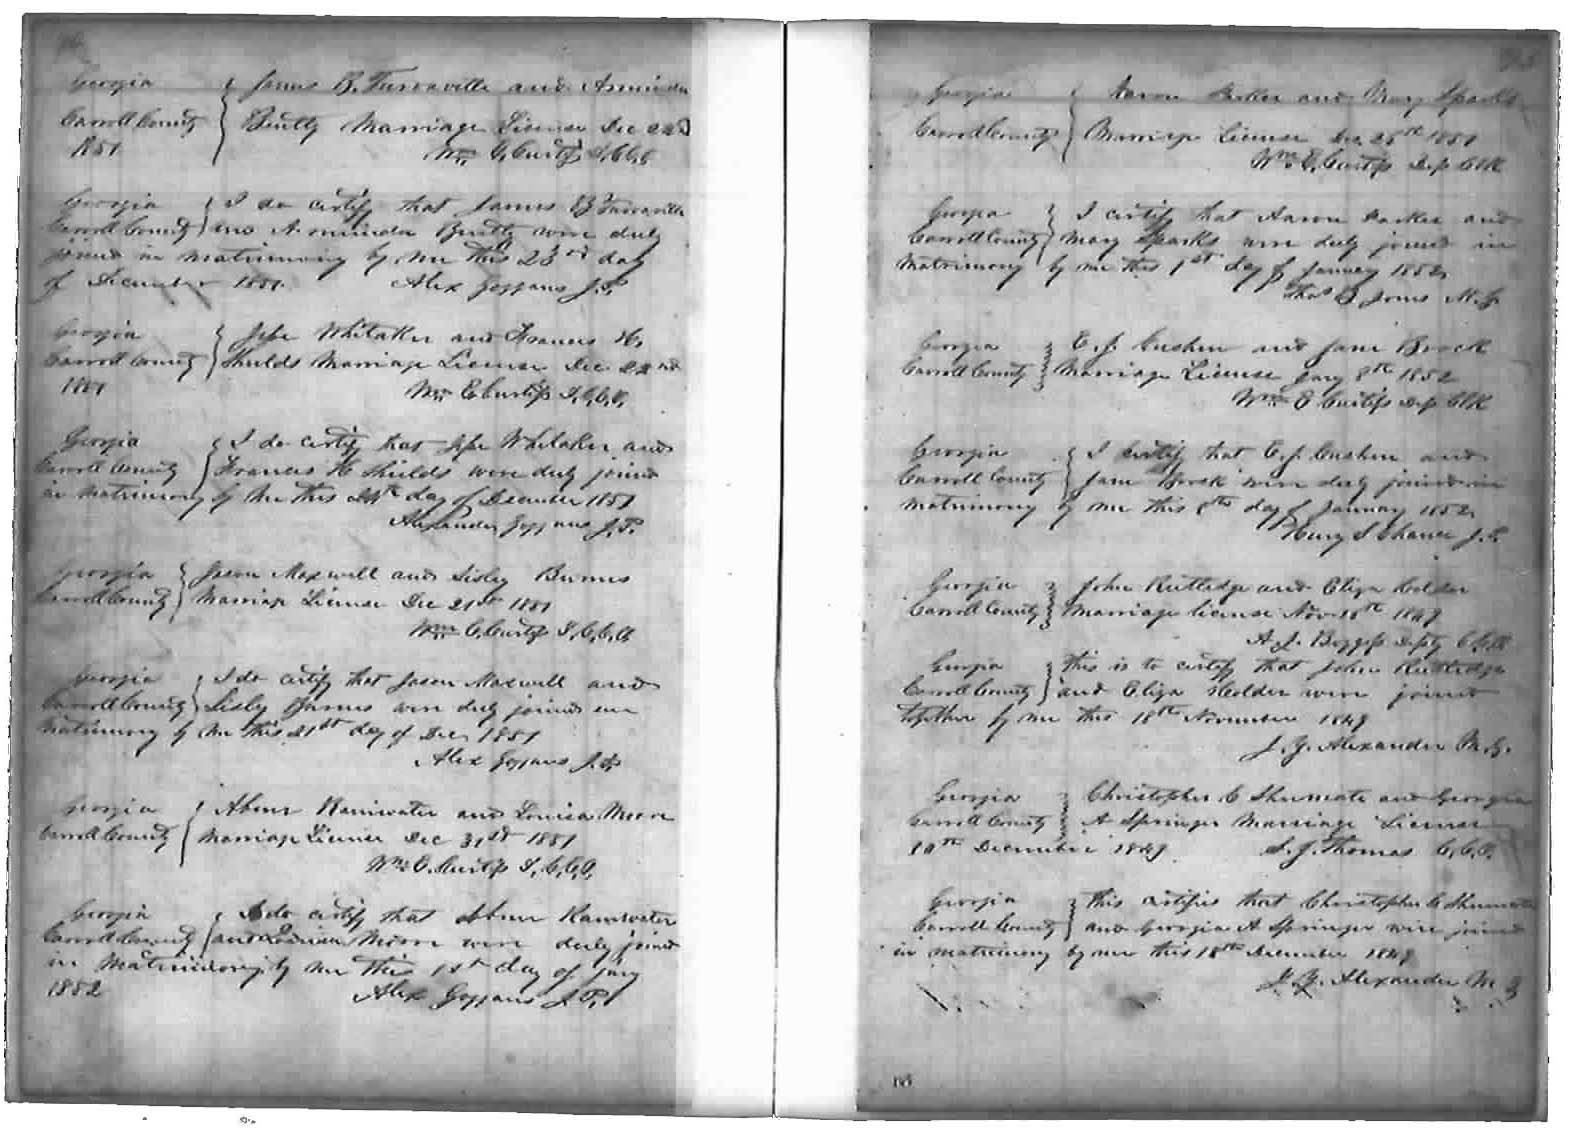 Georgia } James B. Turraville and Arminda
Carroll County } Beutty Marriage License Dec 22nd
1851 Wm E. Curtiss I.C.C.O
Georgia } I do certify that James B Turraville
Carroll County } and Arminda Beutty were duly
joined in matrimony by me this 23rd day
of December 1851. Alex Goggans J.P.
Georgia } Jesse Whitaker and Frances H.
Carroll County } Shields Marriage License Dec 22nd
1851 Wm E Curtiss I.C.C.O.
Georgia } I do certify that Jesse Whitaker and
Carroll County } Frances H Shields were duly joined
in matrimony by me this 24th day of December 1851
Alexander Goggans J.P.
Georgia } Jason Maxwell and Sisley
Carroll County } Marriage License Dec 21st 1851
Wm E. Curtiss I.C.C.O
Georgia } I do certify that Jason Maxwell and
Carroll County } Sisley were duly joined in
matrimony by me this 21st day of Dec 1851
Alex Goggans J.P.
Georgia } Abner Rainwater and Louisa Moore
Carroll County } Marriage License Dec 31st 1851
Wm E. Curtiss I.C.C.O.
Georgia } I do certify that Abner Rainwater
Carroll County } and Louisa Moore were duly joined
in Matrimony by me this 1st day of Jany
1852 Alex Goggans J.P.
Georgia } Aaron Parker and Mary Sparks
Carroll County } Marriage License Dec 25th 1851
Wm E. Curtiss Dep Clk
Georgia } I certify that Aaron Parker and
Carroll County } Mary Sparks were duly joined in
Matrimony by me this 1st day of January 1852
Thos B Jones M.G.
Georgia } C. J. Cushen and Jane Brock
Carroll County } Marriage License Jany 8th 1852
Wm E Curtiss Dep Clk
Georgia } I certify that C. J. Cushen and
Carroll County } Jane Brock were duly joined in
matrimony by me this 8th day of January 1852
Henry S Chance J.P.
Georgia } John Rutledge and Eliza Holder
Carroll County } Marriage license Nov 18th 1849
A. J. Boggess Depty C.C.O
Georgia } this is to certify that John Rutledge
Carroll County } and Eliza Holder were joined
together by me this 18th November 1849
J. Y. Alexander M.G.
Georgia } Christopher C Shumate and Georgia
Carroll County } A Springer Marriage License
December 1849 S. J. Thomas C.C.O.
Georgia } this certifies that Christopher C Shumate
Carroll County } and Georgia A Springer were joined
in matrimony by me this 18th December 1849
J. Y. Alexander M G